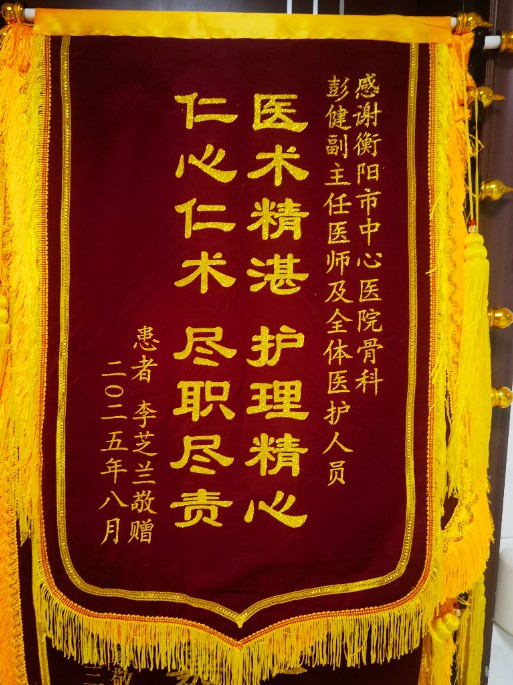 感谢衡阳市中心医院骨科
彭健副主任医师及全体医护人员
医术精湛 护理精心
仁心仁术 尽职尽责
患者 李芝兰敬赠
二〇二五年八月